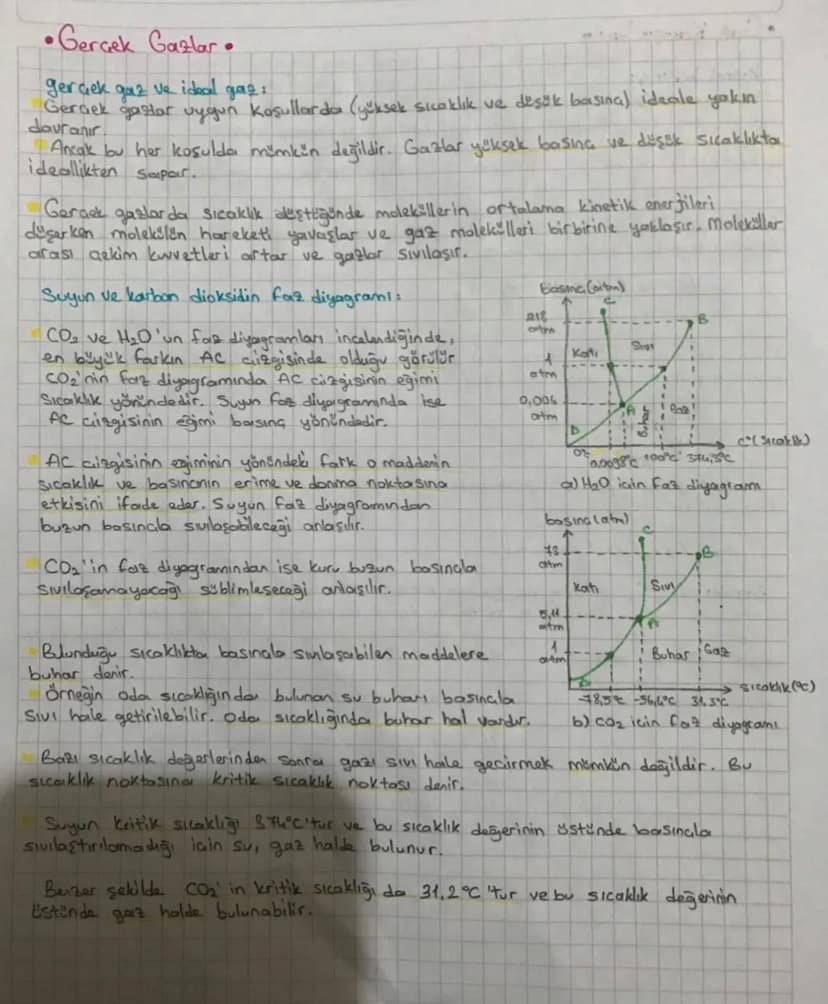 • Gerçek Gazlar •
gerçek gaz ve ideal gaz:
Gerçek gazlar uygun koşullarda (yüksek sıcaklık ve düşük basınç) ideale yakın
davranır.
Ancak bu her koşulda mümkün değildir. Gazlar yüksek basınç ve düşük sıcaklıkta
ideallikten sapar.
Gerçek gazlarda sıcaklık düştüğünde moleküllerin ortalama kinetik enerjileri
düşerken molekülün hareketi yavaşlar ve gaz molekülleri birbirine yaklaşır. Moleküller
arası çekim kuvvetleri artar ve gazlar sıvılaşır.
Suyun ve karbon dioksidin faz diyagramı:
CO₂ ve H₂O'un faz diyagramları incelendiğinde,
en büyük farkın AC çizgisinde olduğu görülür
CO₂'nin faz diyagramında AC çizgisinin eğimi
Sıcaklık yönündedir. Suyun faz diyagramında ise
AC çizgisinin eğimi basınç yönündedir.
AC çizgisinin eğiminin yönündeki fark o maddenin
sıcaklık ve basıncının erime ve donma noktasına
etkisini ifade eder. Suyun faz diyagramından
buzun basınçla sıvılaşabileceği anlaşılır.
CO₂'in faz diyagramından ise kuru buzun basınçla
sıvılaşamayacağı süblimleşeceği anlaşılır.
Bulunduğu sıcaklıkta basınçla sıvılaşabilen maddelere
buhar denir.
Örneğin oda sıcaklığında bulunan su buharı basınçla
sıvı hale getirilebilir. Oda sıcaklığında buhar hal vardır.
basınç(atm)
C
218
atm
B
Katı
Sıvı
1
atm
0,006
atm
A
Buhar
Gaz
D
C°(Sıcaklık)
0°
0,0098°C 100°C 374,3°C
a) H₂O için faz diyagram
basınç(atm)
C
73
atm
B
Katı
Sıvı
5,11
atm
A
1
atm
Buhar
Gaz
D
sıcaklık(°C)
-78,5°C -56,4°C 31,3°C
b) CO₂ için faz diyagramı
Bazı sıcaklık değerlerinden sonra gazı sıvı hale geçirmek mümkün değildir. Bu
sıcaklık noktasına kritik sıcaklık noktası denir.
Suyun kritik sıcaklığı 374°C'tur ve bu sıcaklık değerinin üstünde basınçla
sıvılaştırılamadığı için su, gaz halde bulunur.
Benzer şekilde CO₂'in kritik sıcaklığı da 31,2°C'tur ve bu sıcaklık değerinin
üstünde gaz halde bulunabilir.